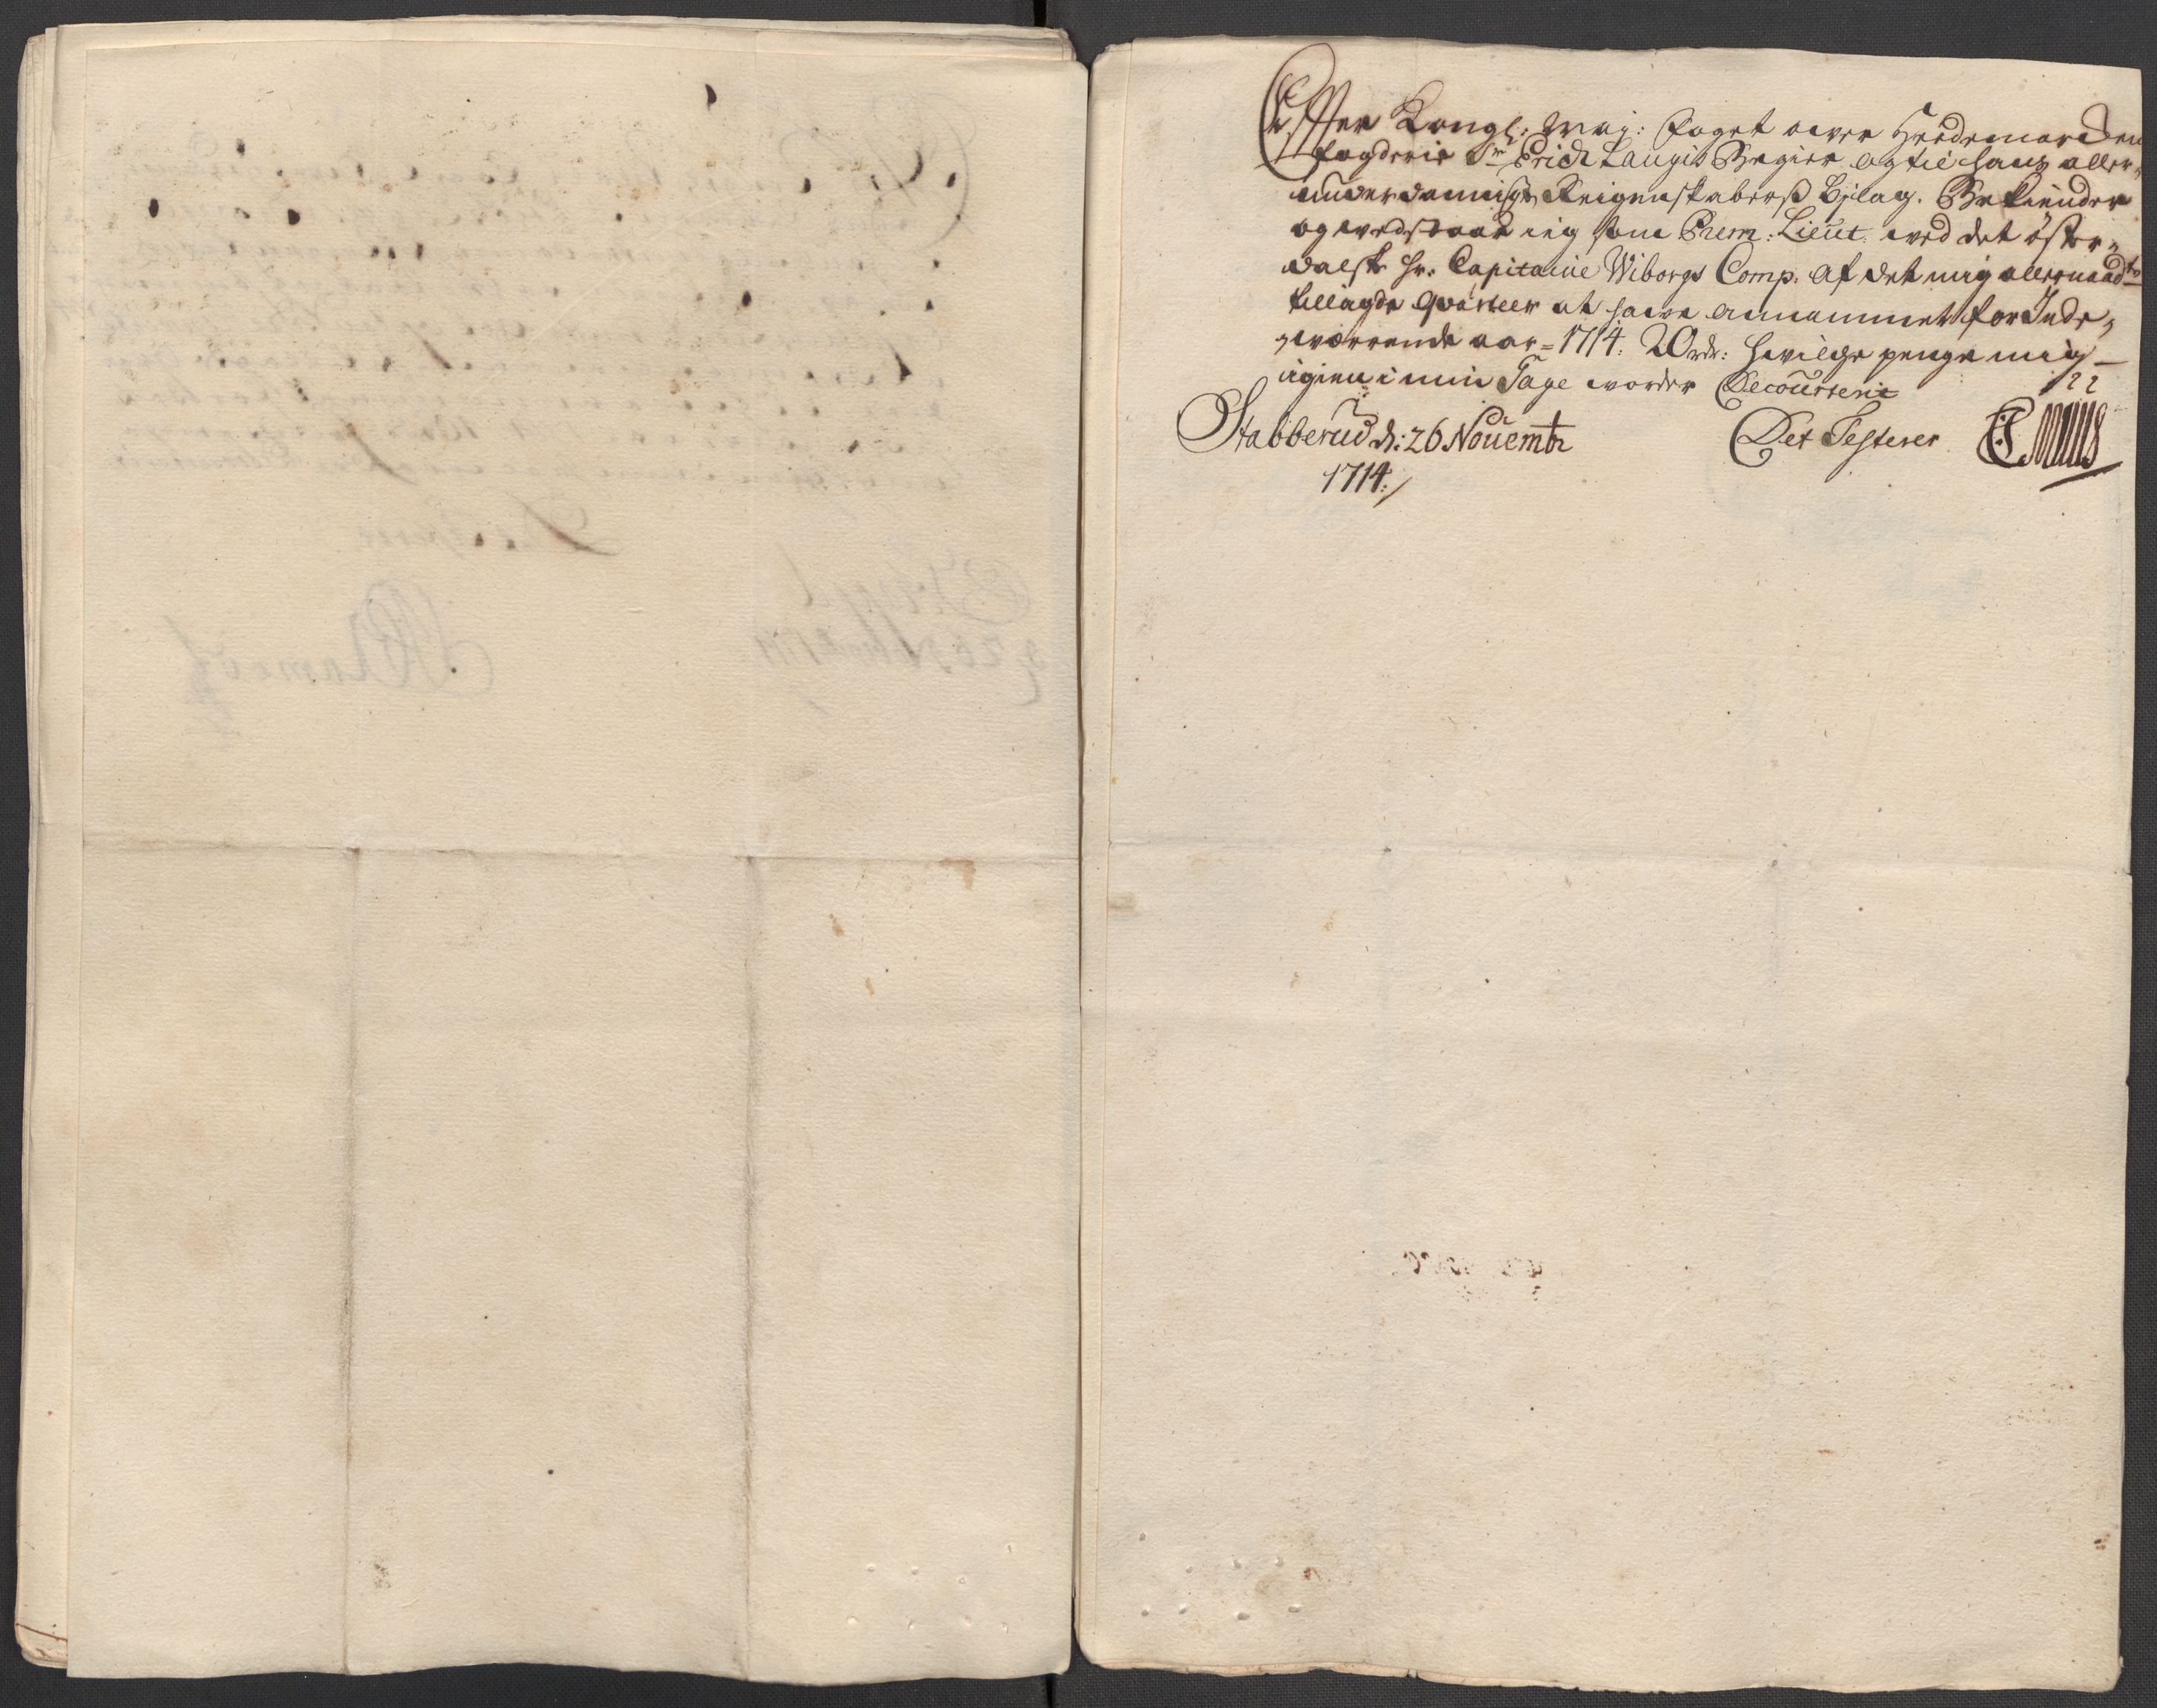 Effter Kongl: May: Foget ower Heedemarcken
Fogderie Sr Erich Laugis Begier og til hans aller-
underdanigste Reigenskabers Bilag. Bekiender
og wedstaar ieg som Prem: Lieut. wed det öster-
dalske Hr. Capitaine Wiborgs Comp. af det mig allernaadst
tillagde Qvarteer at hawe annammet for Inde-
wærrende aar = 1714: 20 rdr: Hwilche penge mig
igien i min Gage worder Decourterit
Stabberud d: 26 Nouembr
1714:
Det Testerer